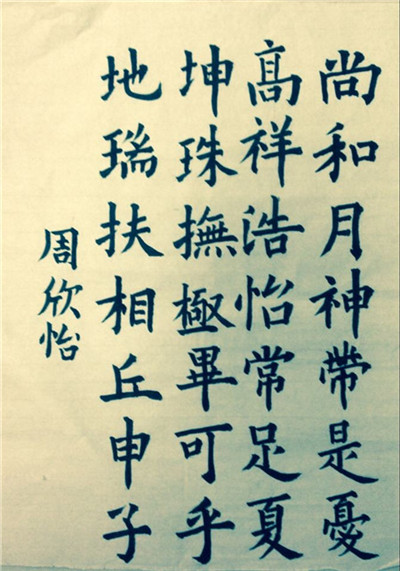 尚和月神帶是憂
髙祥浩怡常足夏
坤珠撫極畢可乎
地瑞扶相丘申子
周欣怡